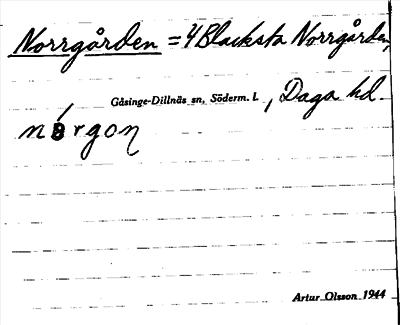 Norrgården = 4 Blacksta Norrgården,
Gåsinge-Dillnäs sn, Söderm. l., Daga hd.
Artur Olsson 1944